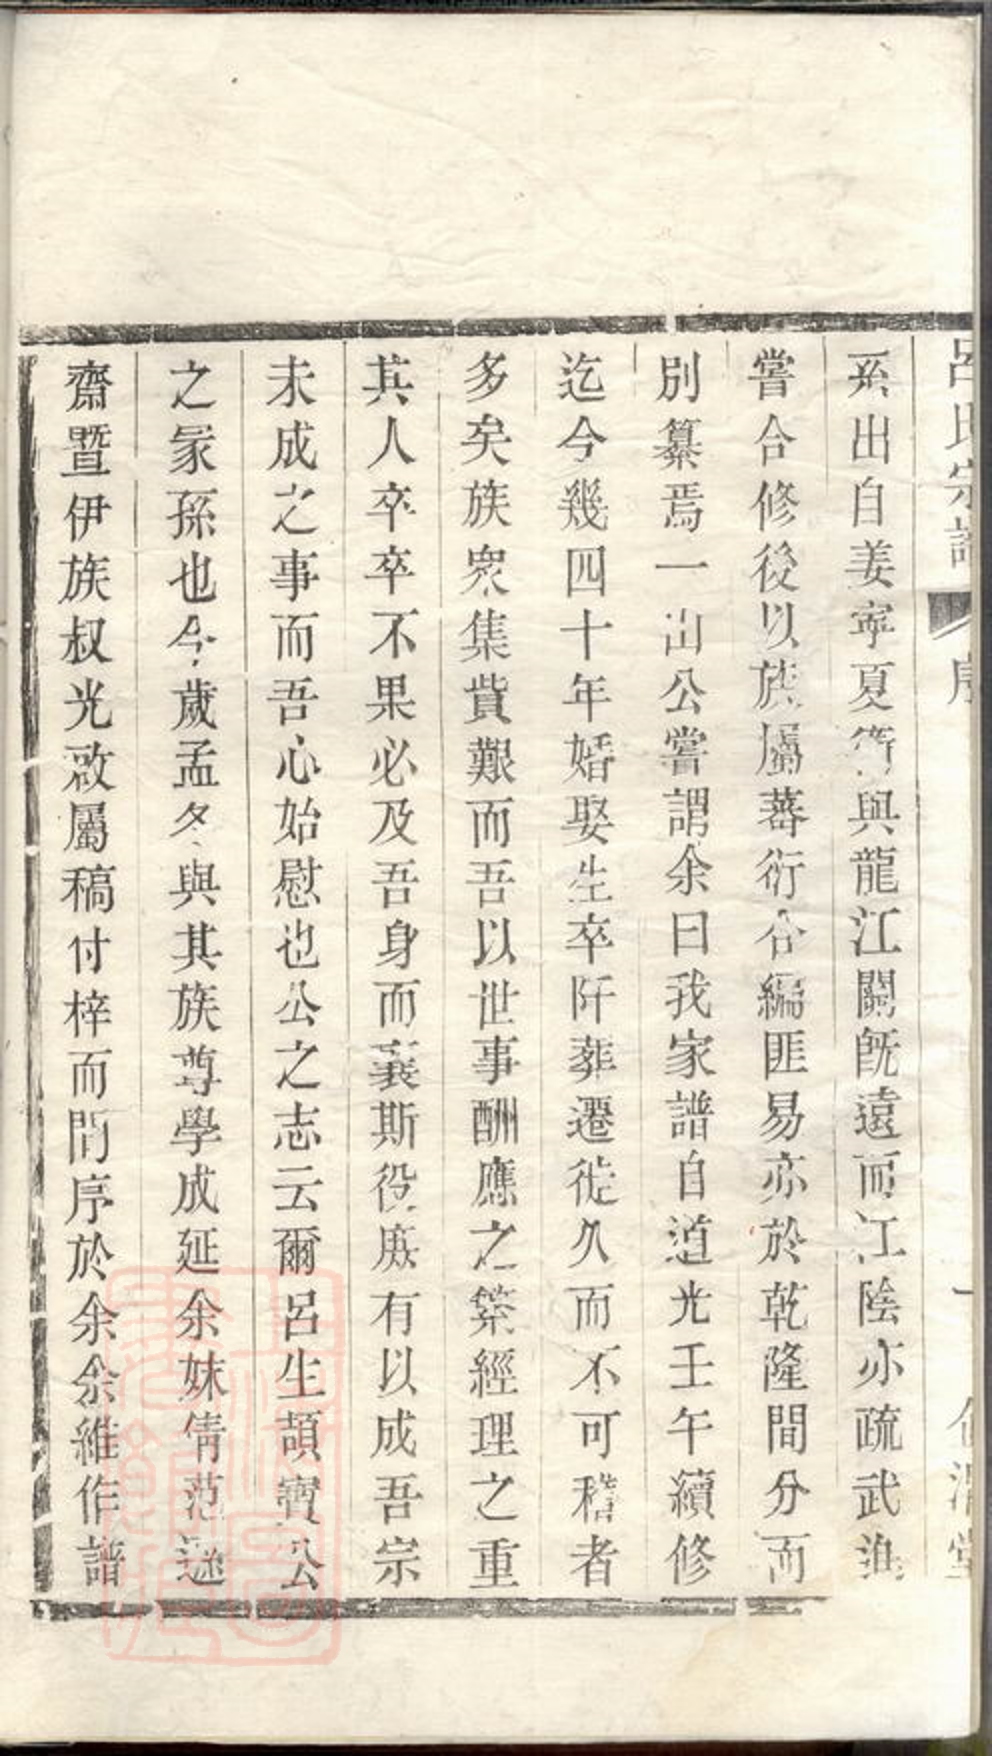 呂氏宗譜 序 一
系出自姜寧夏衛與龍江關既遠而江陰亦疏武進
嘗合修後以族屬蕃衍合編匪易亦於乾隆間分而
別纂焉一山公嘗謂余曰我家譜自道光壬午續修
迄今幾四十年婚娶生卒阡葬遷徙久而不可稽者
多矣族眾集貲艱而吾以世事酬應之繁經理之重
其人卒卒不果必及吾身而襄斯役庶有以成吾宗
未成之事而吾心始慰也公之志云爾呂生頡寶公
之冢孫也今歲孟冬與其族尊學成延余妹倩范遜
齋暨伊族叔光啟屬稿付梓而問序於余余維作譜